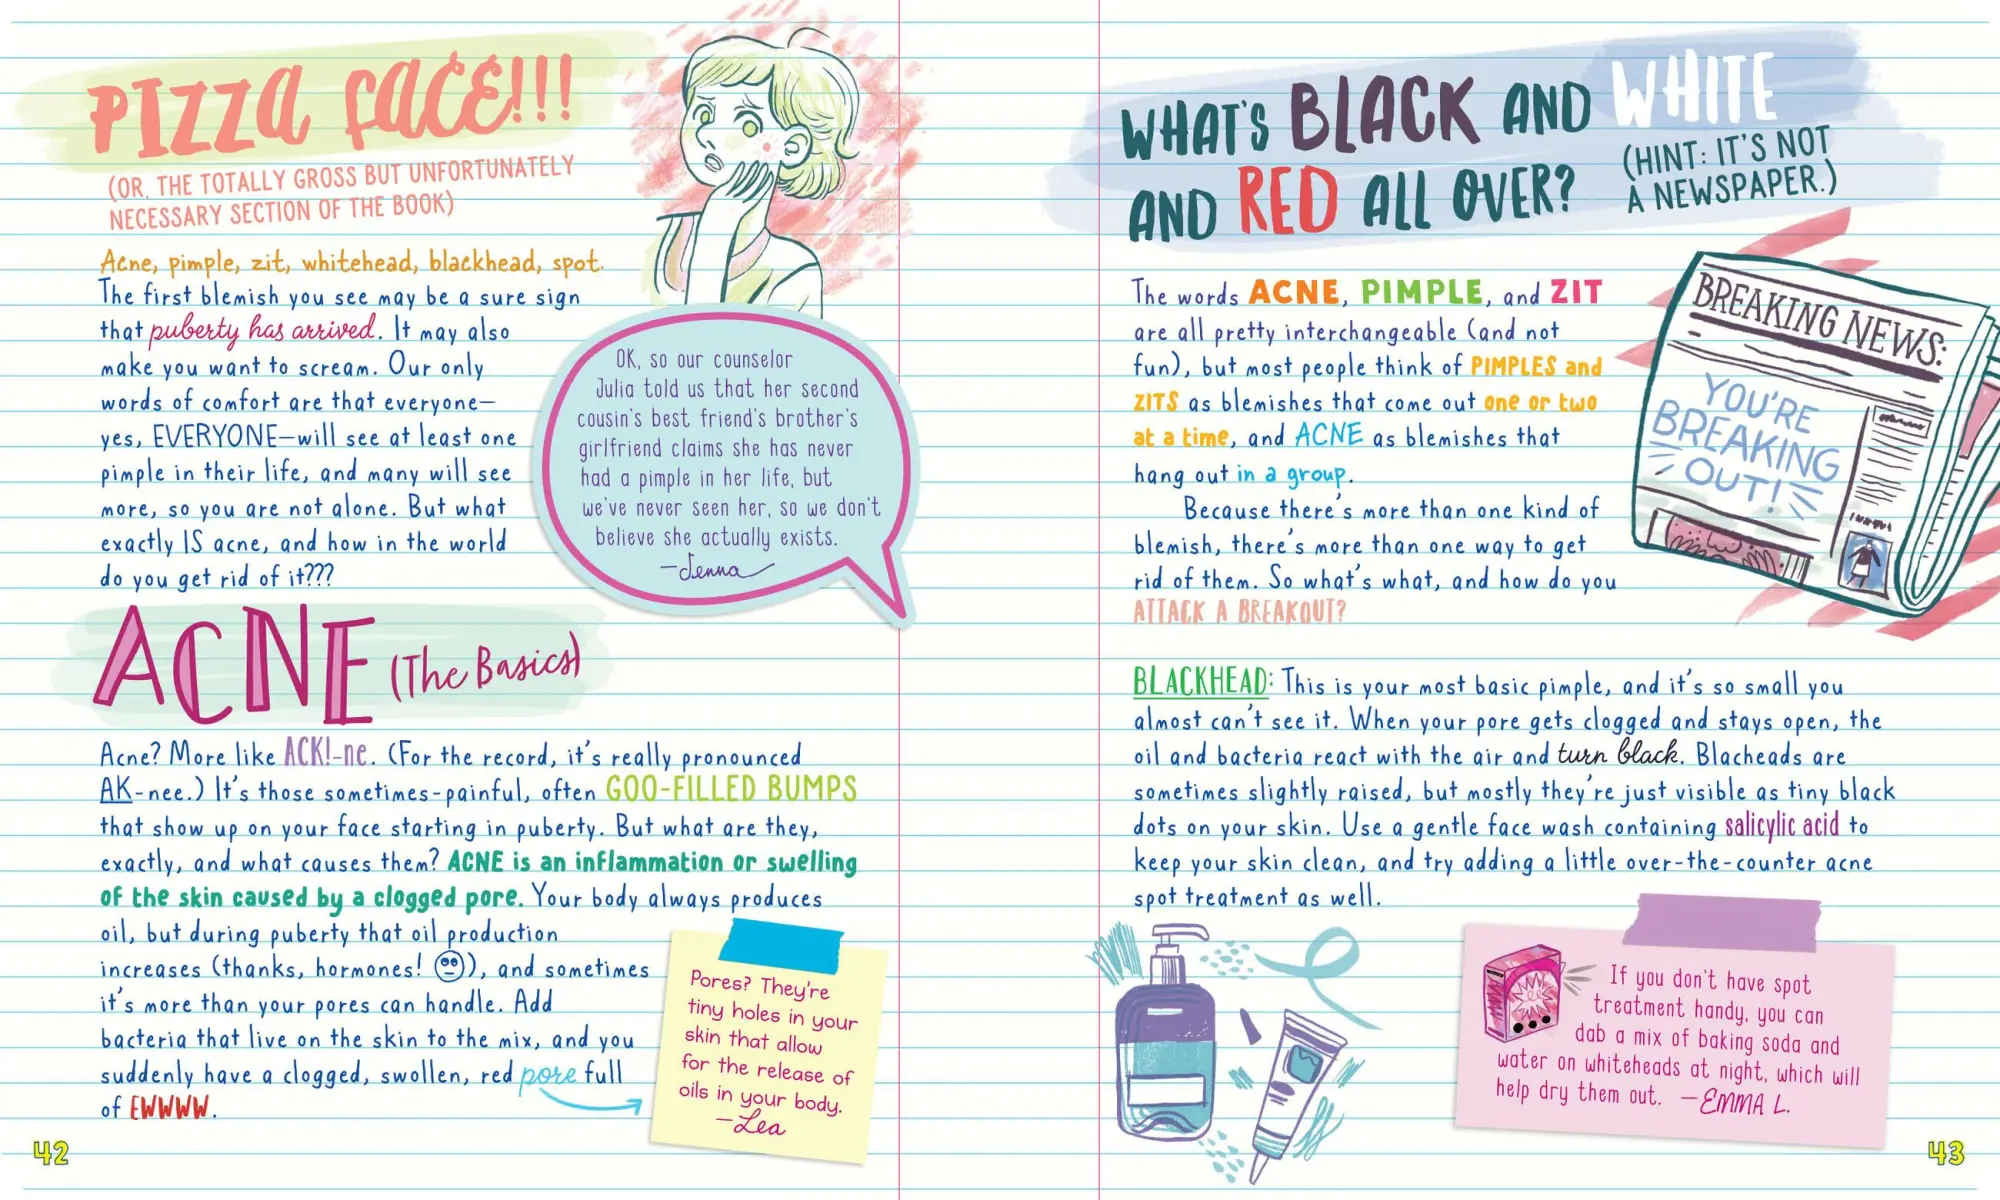 PIZZA FACE!!!
(OR, THE TOTALLY GROSS BUT UNFORTUNATELY
NECESSARY SECTION OF THE BOOK)
Acne, pimple, zit, whitehead, blackhead, spot.
The first blemish you see may be a sure sign
that puberty has arrived. It may also
make you want to scream. Our only
words of comfort are that everyone—
yes, EVERYONE—will see at least one
pimple in their life, and many will see
more, so you are not alone. But what
exactly IS acne, and how in the world
do you get rid of it???
OK, so our counselor
Julia told us that her second
cousin's best friend's brother's
girlfriend claims she has never
had a pimple in her life, but
we've never seen her, so we don't
believe she actually exists.
—Jenna
ACNE (The Basics)
Acne? More like ACK!-ne. (For the record, it's really pronounced
AK-nee.) It's those sometimes-painful, often GOO-FILLED BUMPS
that show up on your face starting in puberty. But what are they,
exactly, and what causes them? ACNE is an inflammation or swelling
of the skin caused by a clogged pore. Your body always produces
oil, but during puberty that oil production
increases (thanks, hormones! 🙄), and sometimes
it's more than your pores can handle. Add
bacteria that live on the skin to the mix, and you
suddenly have a clogged, swollen, red pore full
of EWWWW.
Pores? They're
tiny holes in your
skin that allow
for the release of
oils in your body.
—Lea
42
WHAT'S BLACK AND WHITE
AND RED ALL OVER?
(HINT: IT'S NOT
A NEWSPAPER.)
The words ACNE, PIMPLE, and ZIT
are all pretty interchangeable (and not
fun), but most people think of PIMPLES and
ZITS as blemishes that come out one or two
at a time, and ACNE as blemishes that
hang out in a group.
Because there's more than one kind of
blemish, there's more than one way to get
rid of them. So what's what, and how do you
ATTACK A BREAKOUT?
BREAKING NEWS:
YOU'RE
BREAKING
OUT!
BLACKHEAD: This is your most basic pimple, and it's so small you
almost can't see it. When your pore gets clogged and stays open, the
oil and bacteria react with the air and turn black. Blacheads are
sometimes slightly raised, but mostly they're just visible as tiny black
dots on your skin. Use a gentle face wash containing salicylic acid to
keep your skin clean, and try adding a little over-the-counter acne
spot treatment as well.
If you don't have spot
treatment handy, you can
dab a mix of baking soda and
water on whiteheads at night, which will
help dry them out. —EMMA L.
43